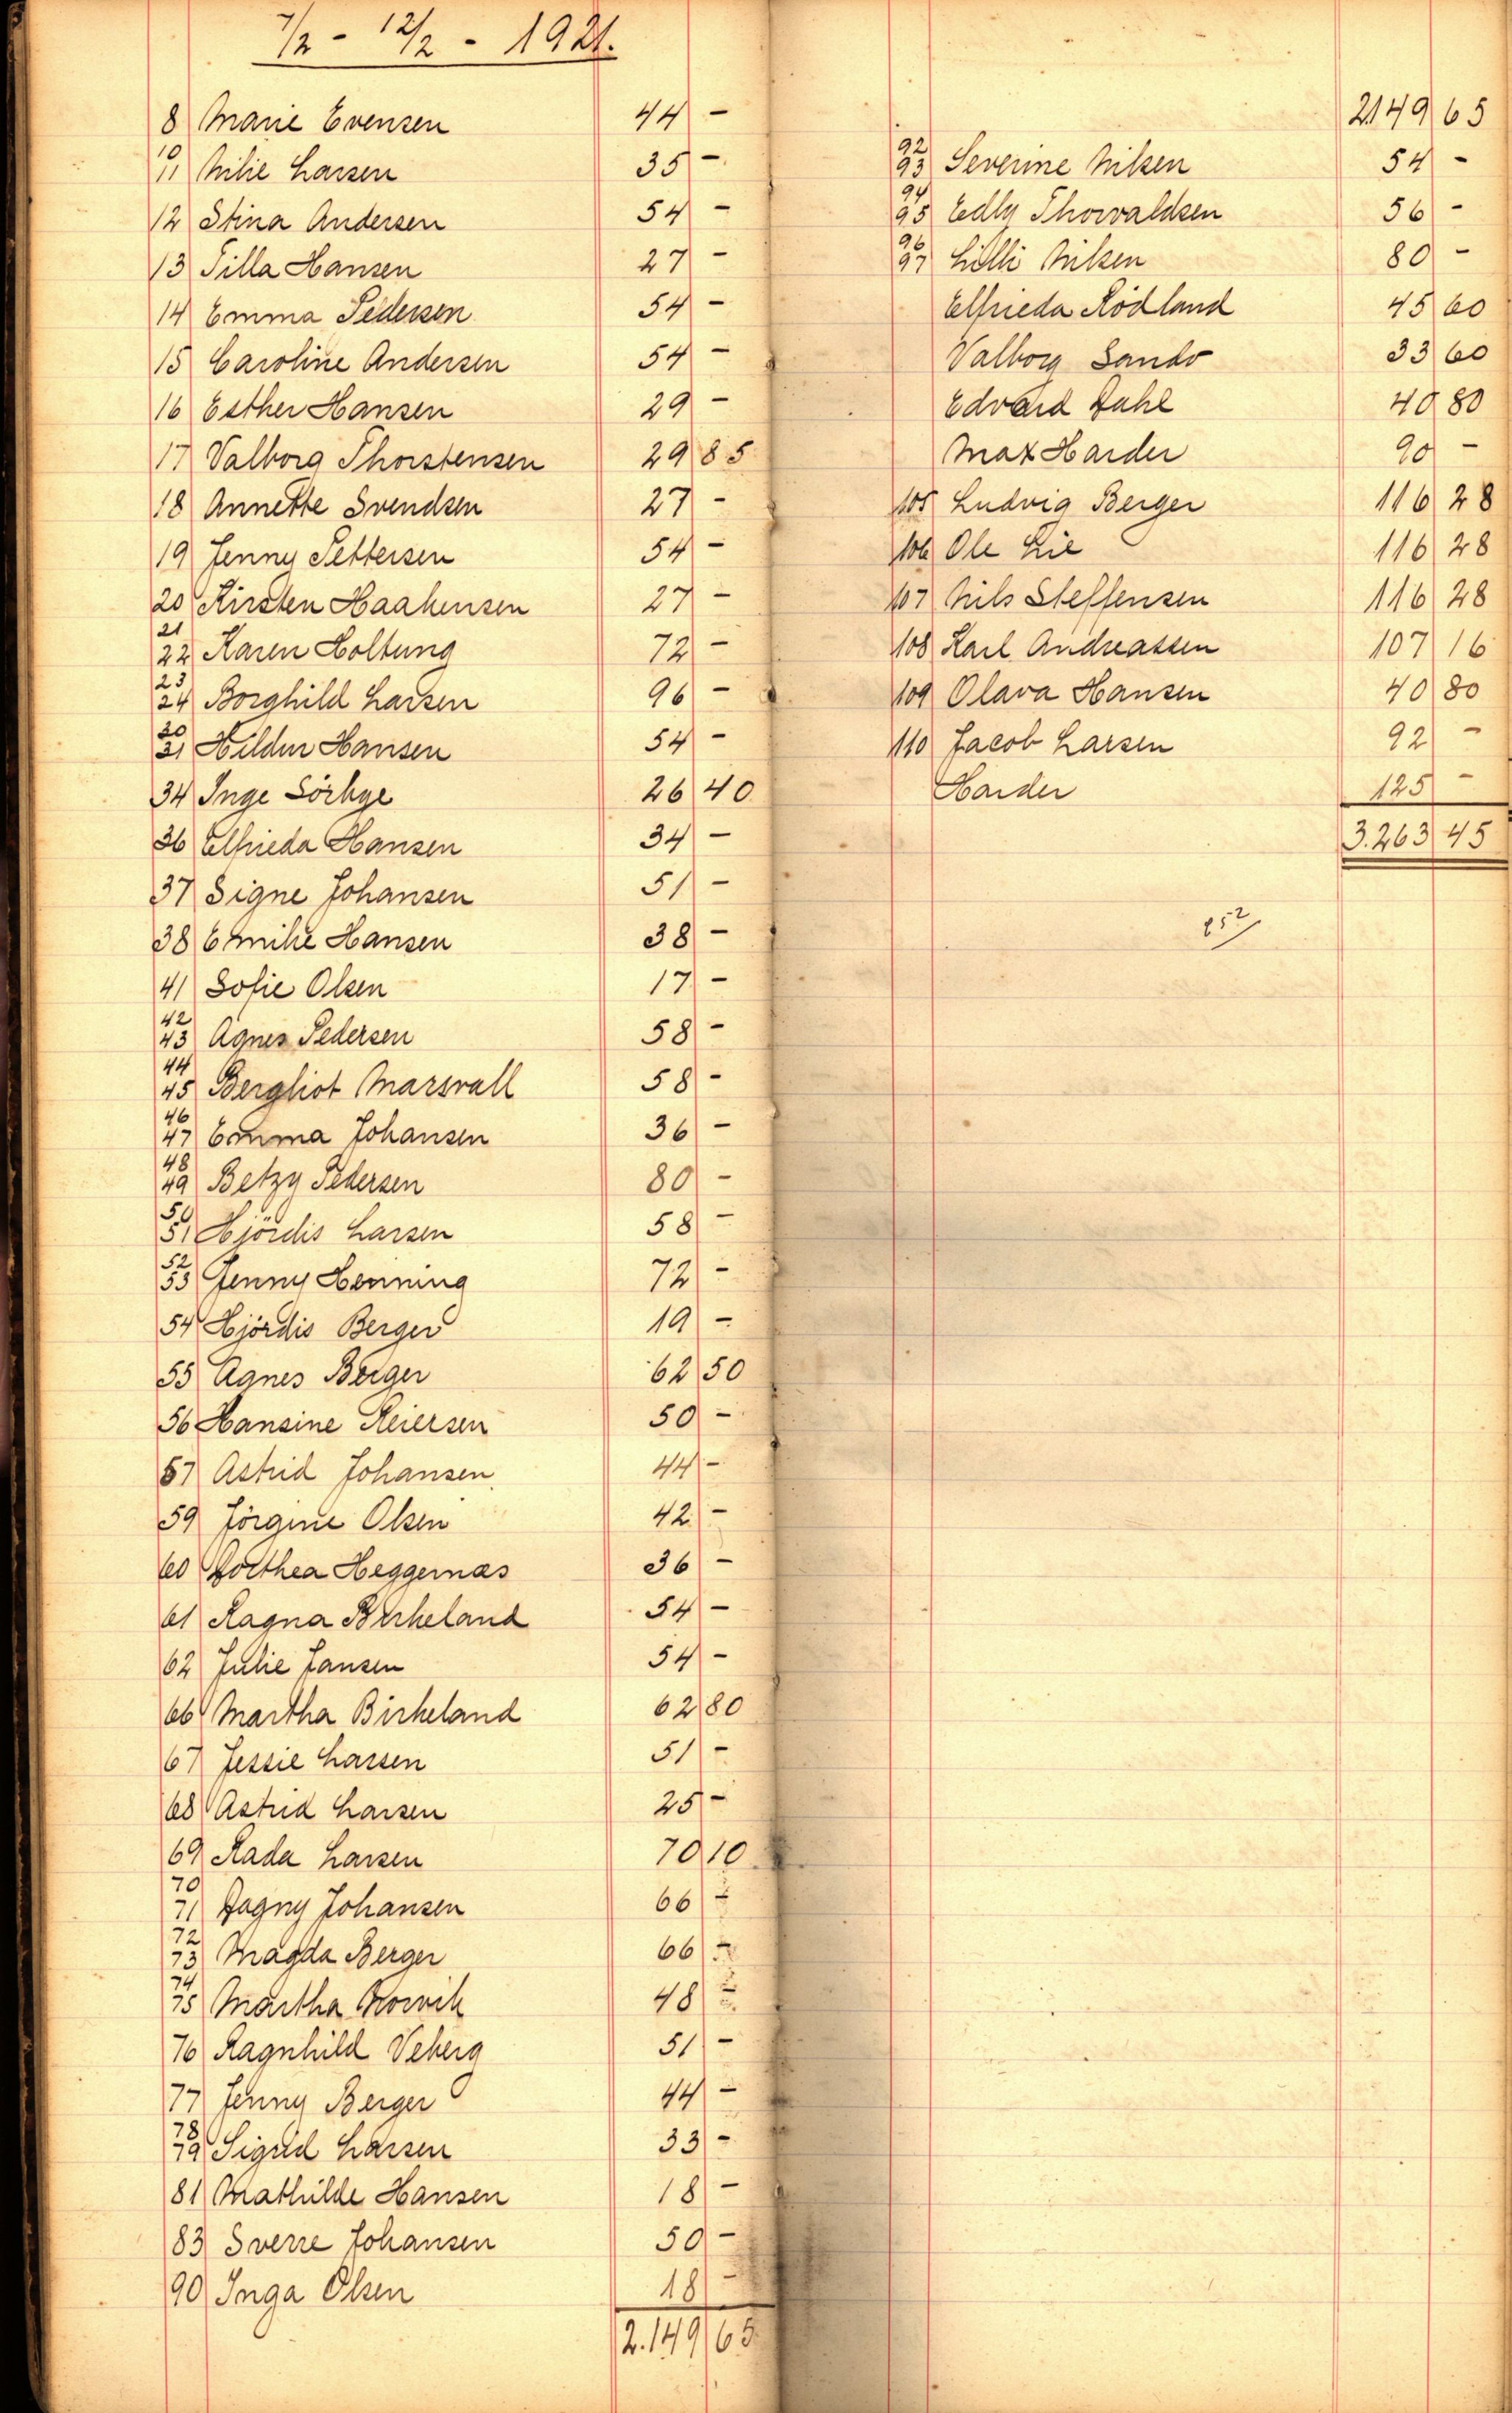 7/2 - 12/2 - 1921.
8 Marie Evensen 44 -
10 11 Milie Larsen 35 -
12 Stina Andersen 54 -
13 Tilla Hansen 27 -
14 Emma Pedersen 54 -
15 Caroline Andersen 54 -
16 Esther Hansen 29 -
17 Valborg Thorstensen 29 85
18 Annette Svendsen 27 -
19 Jenny Pettersen 54 -
20 Kirsten Haakensen 27 -
21 22 Karen Holtung 72 -
23 24 Borghild Larsen 96 -
30 31 Hildur Hansen 54 -
34 Inge 26 40
36 Elfrieda Hansen 34 -
37 Signe Johansen 51 -
38 Emilie Hansen 38 -
41 Sofie Olsen 17 -
42 43 Agnes Pedersen 58 -
44 45 Bergliot Marsvall 58 -
46 47 Emma Johansen 36 -
48 49 Betzy Pedersen 80 -
50 51 Hjördis Larsen 58 -
52 53 Jenny Henning 72 -
54 Hjördis Berger 19 -
55 Agnes Berger 62 50
56 Hansine Reiersen 50 -
57 Astrid Johansen 44 -
59 Jörgine Olsen 42 -
60 Dorthea Heggernæs 36 -
61 Ragna Birkeland 54 -
62 Julie Jansen 54 -
66 Martha Birkeland 62 80
67 Jessie Larsen 51 -
68 Astrid Larsen 25 -
69 Rada Larsen 70 10
70 71 Dagny Johansen 66 -
72 73 Magda Berger 66 -
74 75 Martha 48 -
76 Ragnhild Veberg 51 -
77 Jenny Berger 44 -
78 79 Sigrid Larsen 33 -
81 Mathilde Hansen 18 -
83 Sverre Johansen 50 -
90 Inga Olsen 18 -
2.149 65
2149 65
92 93 Severine Nilsen 54 -
94 95 Edly Thorvaldsen 56 -
96 97 Lilli Nilsen 80 -
Elfrieda Rödland 45 60
Valborg Sandv 33 60
Edvard Dahl 40 80
Max Harder 90 -
105 Ludvig Berger 116 28
106 Ole Lie 116 28
107 Nils Steffensen 116 28
108 Karl Andreassen 107 16
109 Olava Hansen 40 80
110 Jacob Larsen 92 -
Harder 125 -
3.263 45